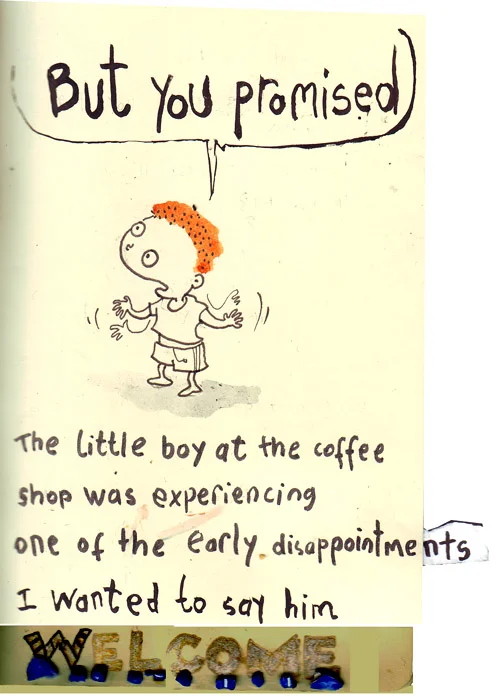 But you promised
The little boy at the coffee
shop was experiencing
one of the early disappointments
I wanted to say him
WELCOME